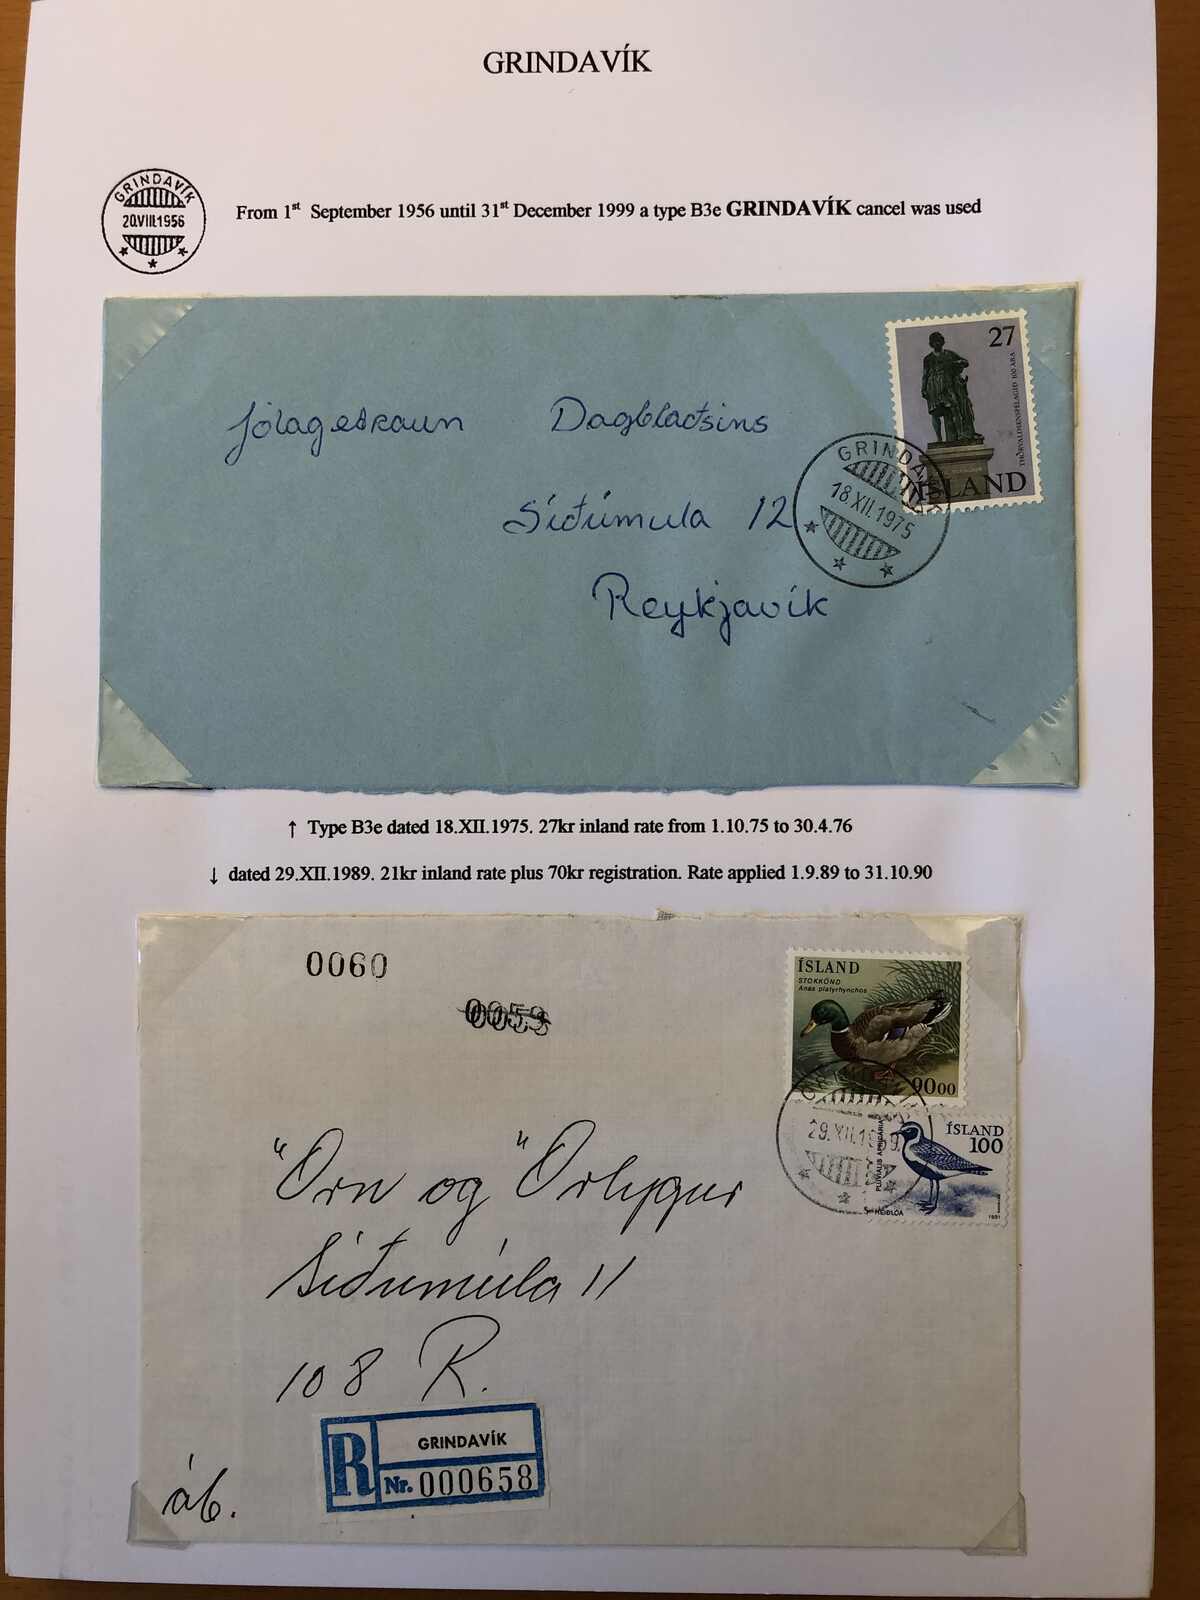 GRINDAVÍK
GRINDAVÍK
20.VIII.1956
From 1st September 1956 until 31st December 1999 a type B3e GRINDAVÍK cancel was used
27
THORVALDSENSFÉLAGIÐ 100 ÁRA
ÍSLAND
Jólagetraun Dagblaðsins
GRINDAVÍK
18.XII.1975
Síðumúla 12
Reykjavík
↑ Type B3e dated 18.XII.1975. 27kr inland rate from 1.10.75 to 30.4.76
↓ dated 29.XII.1989. 21kr inland rate plus 70kr registration. Rate applied 1.9.89 to 31.10.90
0060
0059
ÍSLAND
STOKKÖND
Anas platyrhynchos
9000
29.XII.1989
ÍSLAND
100
PLUVIALIS APRICARIA
HEIÐLÓA
1981
"Örn og "Örlygur
Síðumúla 11
108 R.
R
GRINDAVÍK
Nr. 000658
áb.